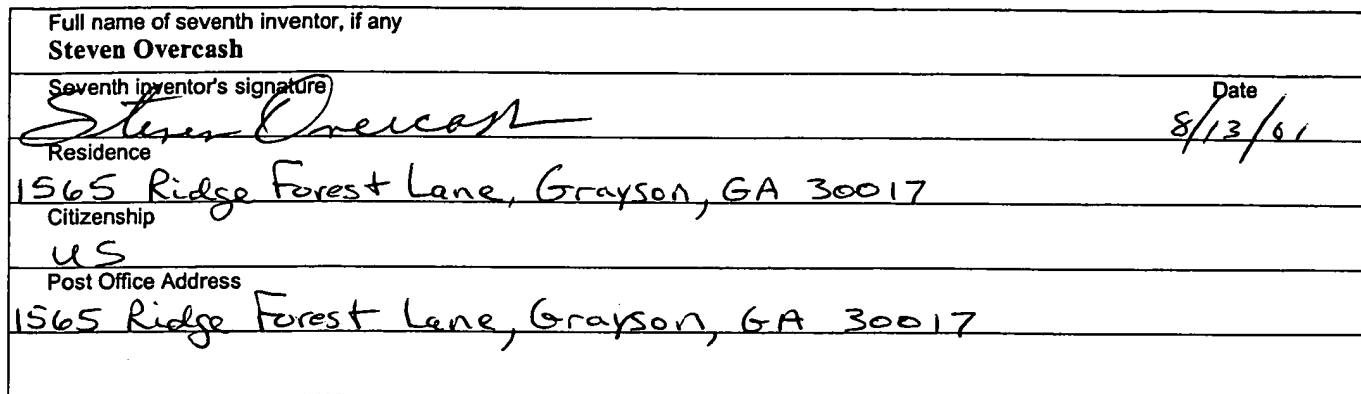 Full name of seventh inventor, if any
Steven Overcash
Seventh inventor's signature Date
Steven Overcash 8/13/01
Residence
1565 Ridge Forest Lane, Grayson, GA 30017
Citizenship
US
Post Office Address
1565 Ridge Forest Lane, Grayson, GA 30017